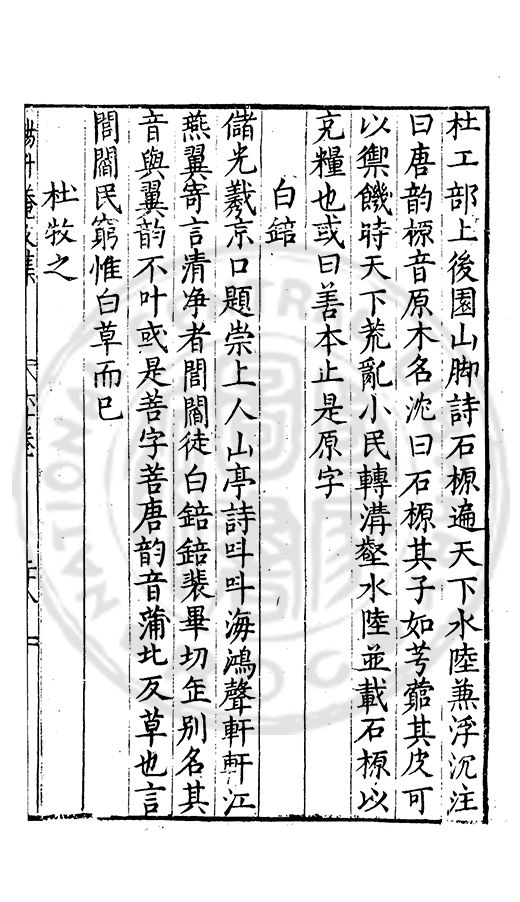 杜工部上後園山脚詩石榞遍天下水陸兼浮沉注
曰唐韵榞音原木名沈曰石榞其子如芎藭其皮可
以禦饑時天下荒亂小民轉溝壑水陸並載石榞以
充糧也或曰善本止是原字
白䤗
儲光羲京口題崇上人山亭詩呌呌海鴻聲軒軒江
燕翼寄言清净者閭閻徒白䤗䤗裴畢切缶别名其
音與翼韵不叶或是菩字菩唐韵音蒲北反草也言
閭閻民窮惟白草而已
杜牧之